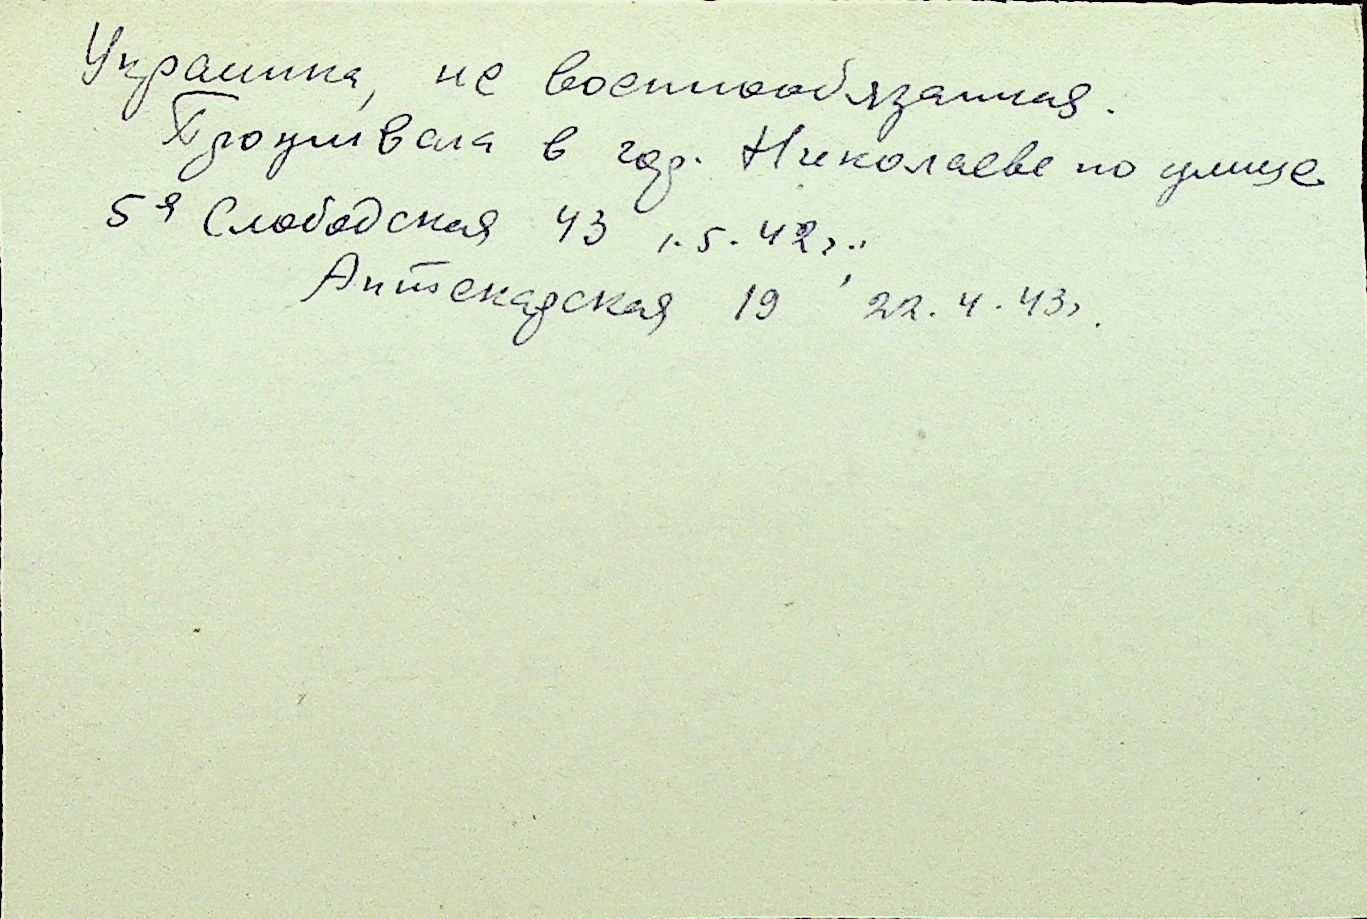 Украинка, не военнообязанная.
Проживала в гор. Николаеве по улице
5я Слободская 43 1.5.42г.,
Аптекарская 19, 22.4.43г.